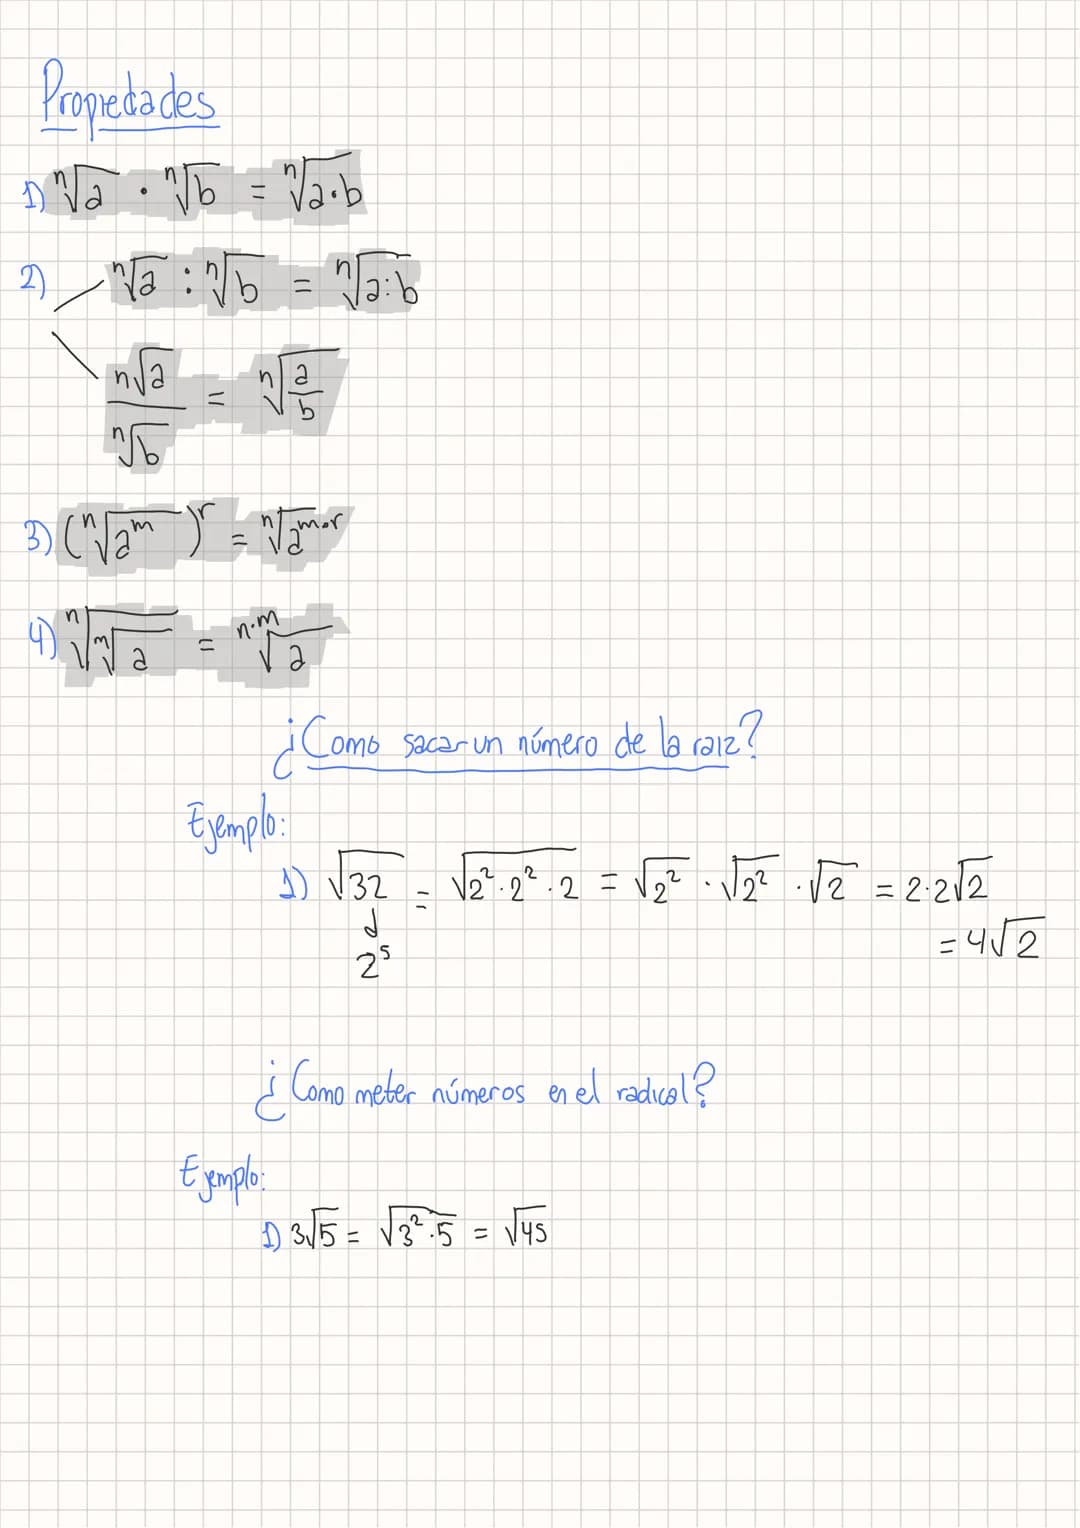 Propiedades
1) ⁿ√a · ⁿ√b = ⁿ√a·b
2) ⁿ√a : ⁿ√b = ⁿ√a:b
ⁿ√a / ⁿ√b = ⁿ√(a/b)
3) (ⁿ√aᵐ)ʳ = ⁿ√aᵐ·ʳ
4) ⁿ√ᵐ√a = ⁿ·ᵐ√a
¿Como sacar un número de la raiz?
Ejemplo:
1) √32 = √2²·2²·2 = √2² · √2² · √2 = 2·2√2
= 4√2
2⁵
¿Como meter números en el radical?
Ejemplo:
1) 3√5 = √3²·5 = √45